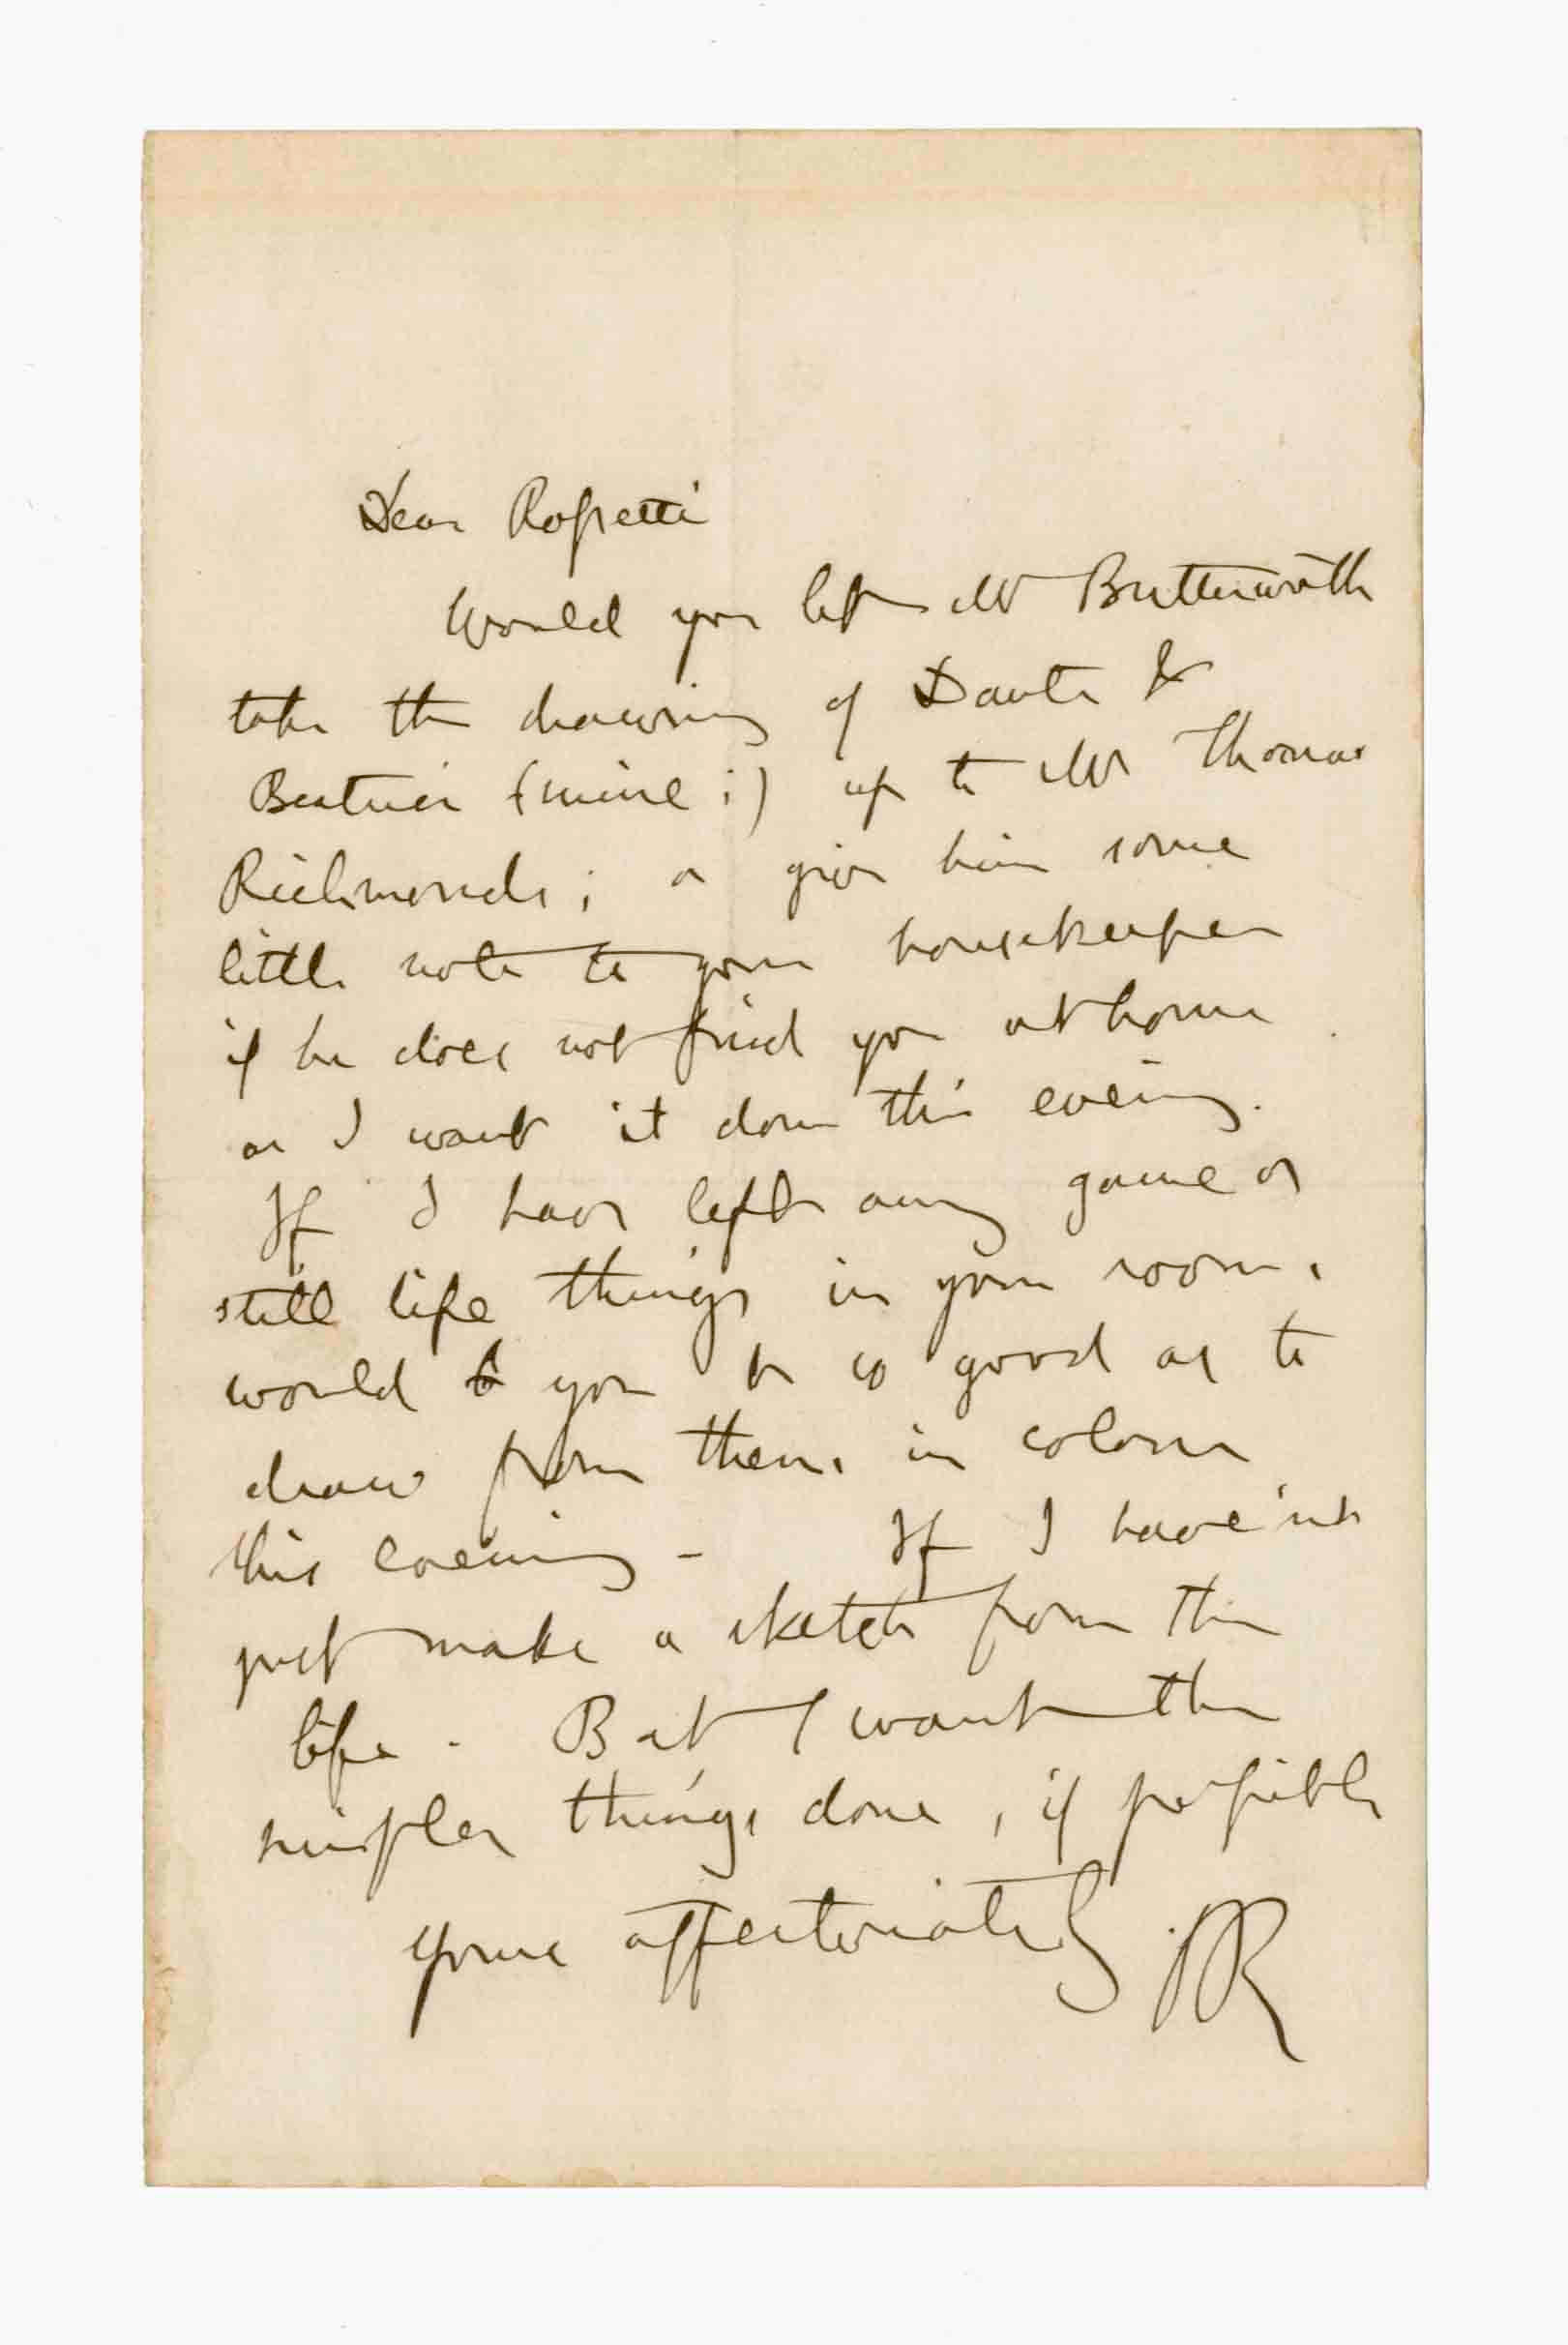 Dear Rossetti
Would you let Mr Butterworth
take the drawing of Dante &
Beatrice (mine;) up to Mr Thomas
Richmonds; or give him some
little note to your housekeeper
if he does not find you at home
as I want it done this evening.
If I have left any game or
still life things in your room,
would you be so good as to
draw from them, in colour
this evening - If I have'nt
just make a sketch from the
life. But I want the
simpler things done, if possible
Yours affectionately JR